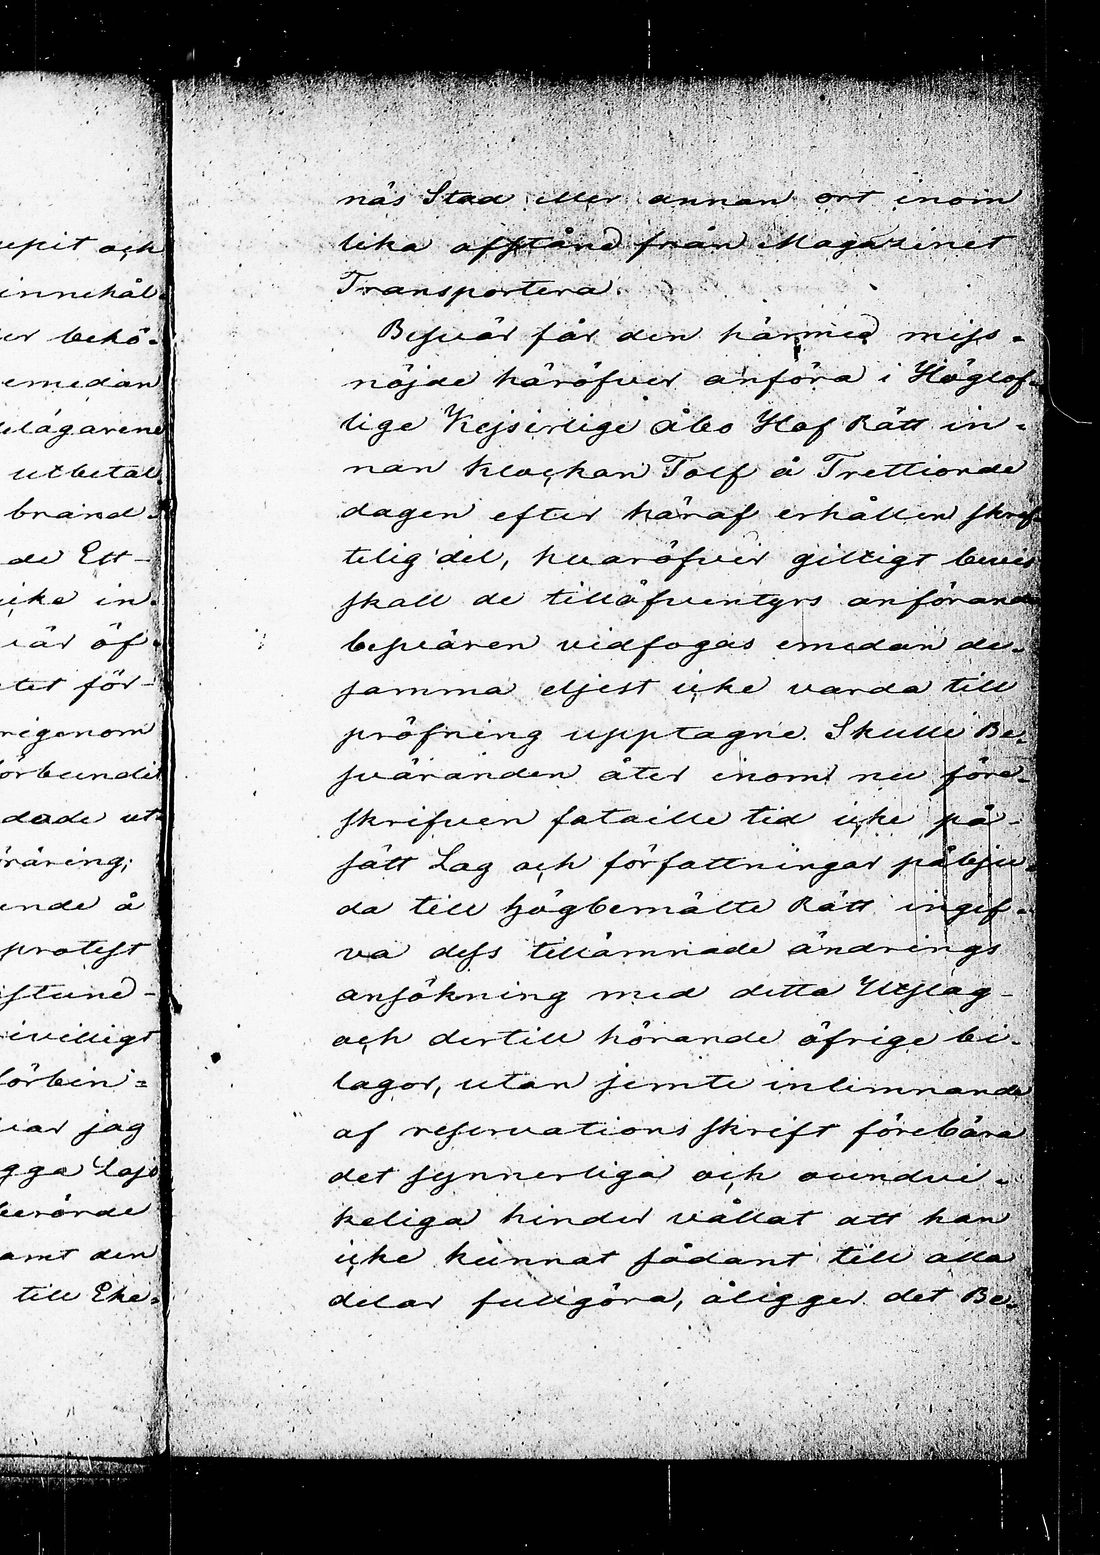 upit och
innehål-
er behö-
emedan
delägarene
utbetal
brand-
de Ett-
icke in-
vär öf-
tet för-
rigenom
förbundit
dade ut-
räring;
ende å
protest
stund-
ivilligt
förbin-
var jag
gga Lass
berörde
amt den
till Eke-
näs Stad eller annan ort inom
lika afstånd från Magazinet
Transportera.
Besvär får den härmed miss-
nöjde häröfver anföra i Höglof-
lige Kejserlige Åbo Hof Rätt in-
nan klockan Tolf å Trettionde
dagen efter häraf erhållen skrif-
telig del, hvaröfver giltigt bevis
skall de tilläfventyrs anförande
besvären vidfogas emedan de-
samma eljest icke varda till
pröfning upptagne. Skulle Be-
sväranden åter inom nu före-
skrifven fataille tid icke på-
sätt Lag och författningar påbju-
da till högbemälte Rätt ingif-
va dess tillämnade ändrings
ansökning med detta Utslag-
och dertill hörande öfrige bi-
lagor, utan jemte inlemnande
af reservationsskrift förebära
det synnerliga och oundvi-
keliga hinder vållat att han
icke kunnat sådant till alla
delar fullgöra, åligger det Be-